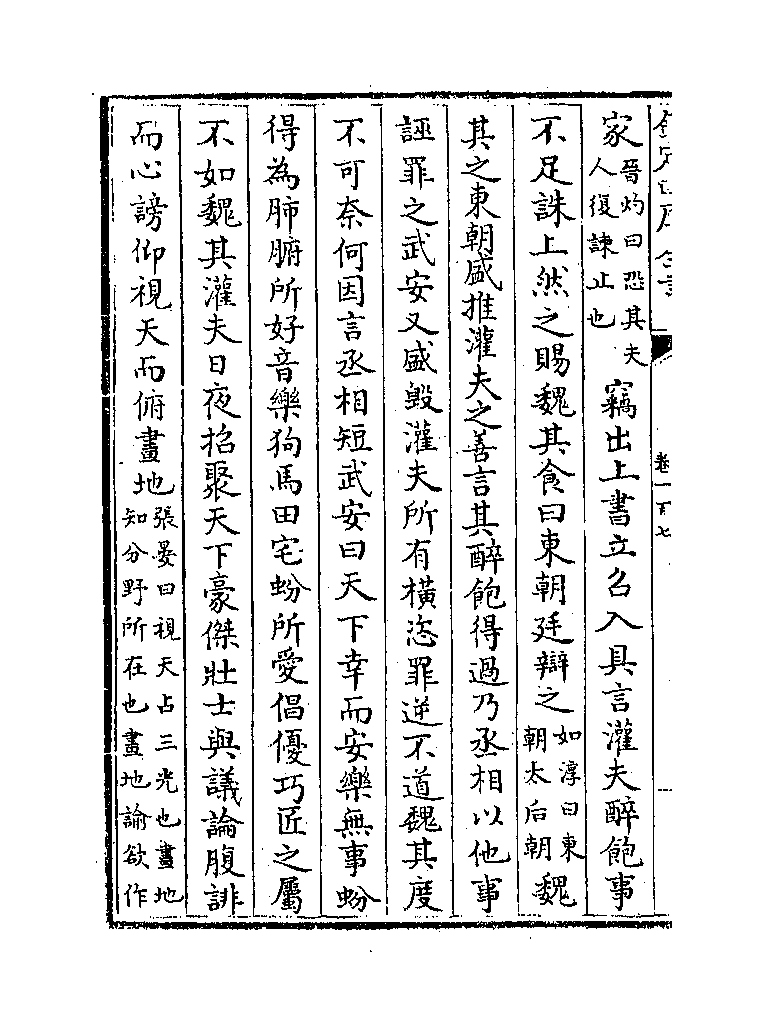 家晉灼曰恐其夫人復諫止也竊出上書立召入具言灌夫醉飽事
不足誅上然之賜魏其食曰東朝廷辯之如淳曰東朝太后朝魏
其之東朝盛推灌夫之善言其醉飽得過乃丞相以他事
誣罪之武安又盛毀灌夫所有橫恣罪逆不道魏其度
不可奈何因言丞相短武安曰天下幸而安樂無事蚡
得為肺腑所好音樂狗馬田宅蚡所愛倡優巧匠之屬
不如魏其灌夫日夜招聚天下豪傑壯士與議論腹誹
而心謗仰視天而俯畫地張晏曰視天占三光也畫地知分野所在也畫地諭欲作
卷一百七